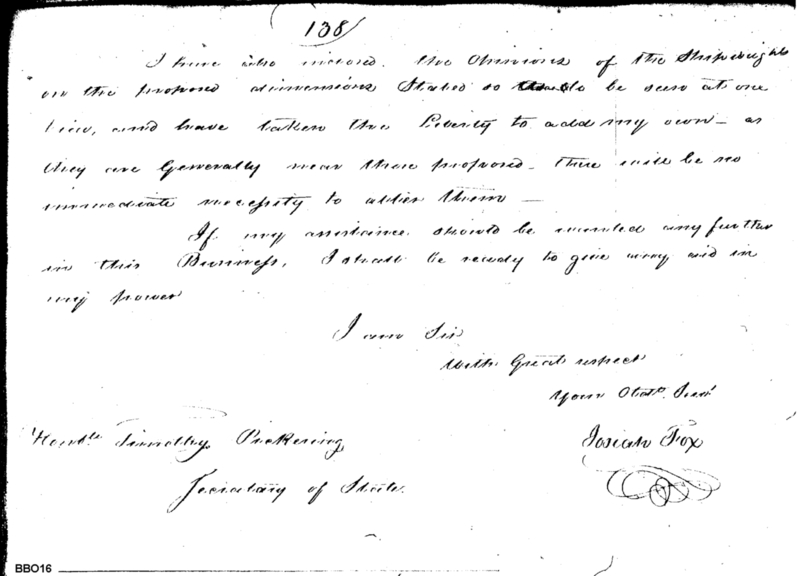 138
I have also inclosed the Opinions of the Shipwrights
on the proposed dimensions Stated so as to be seen at one
View, and have taken the Liberty to add my own – as
they are Generally near those proposed – there will be no
immediate necessity to alter them –
If my assistance should be wanted any further
in this Business, I shall be ready to give any aid in
my power
I am Sir
With Great respect
Your Obdt. Servt
Honble Timothy Pickering
Josiah Fox
Secretary of State.
BBO16